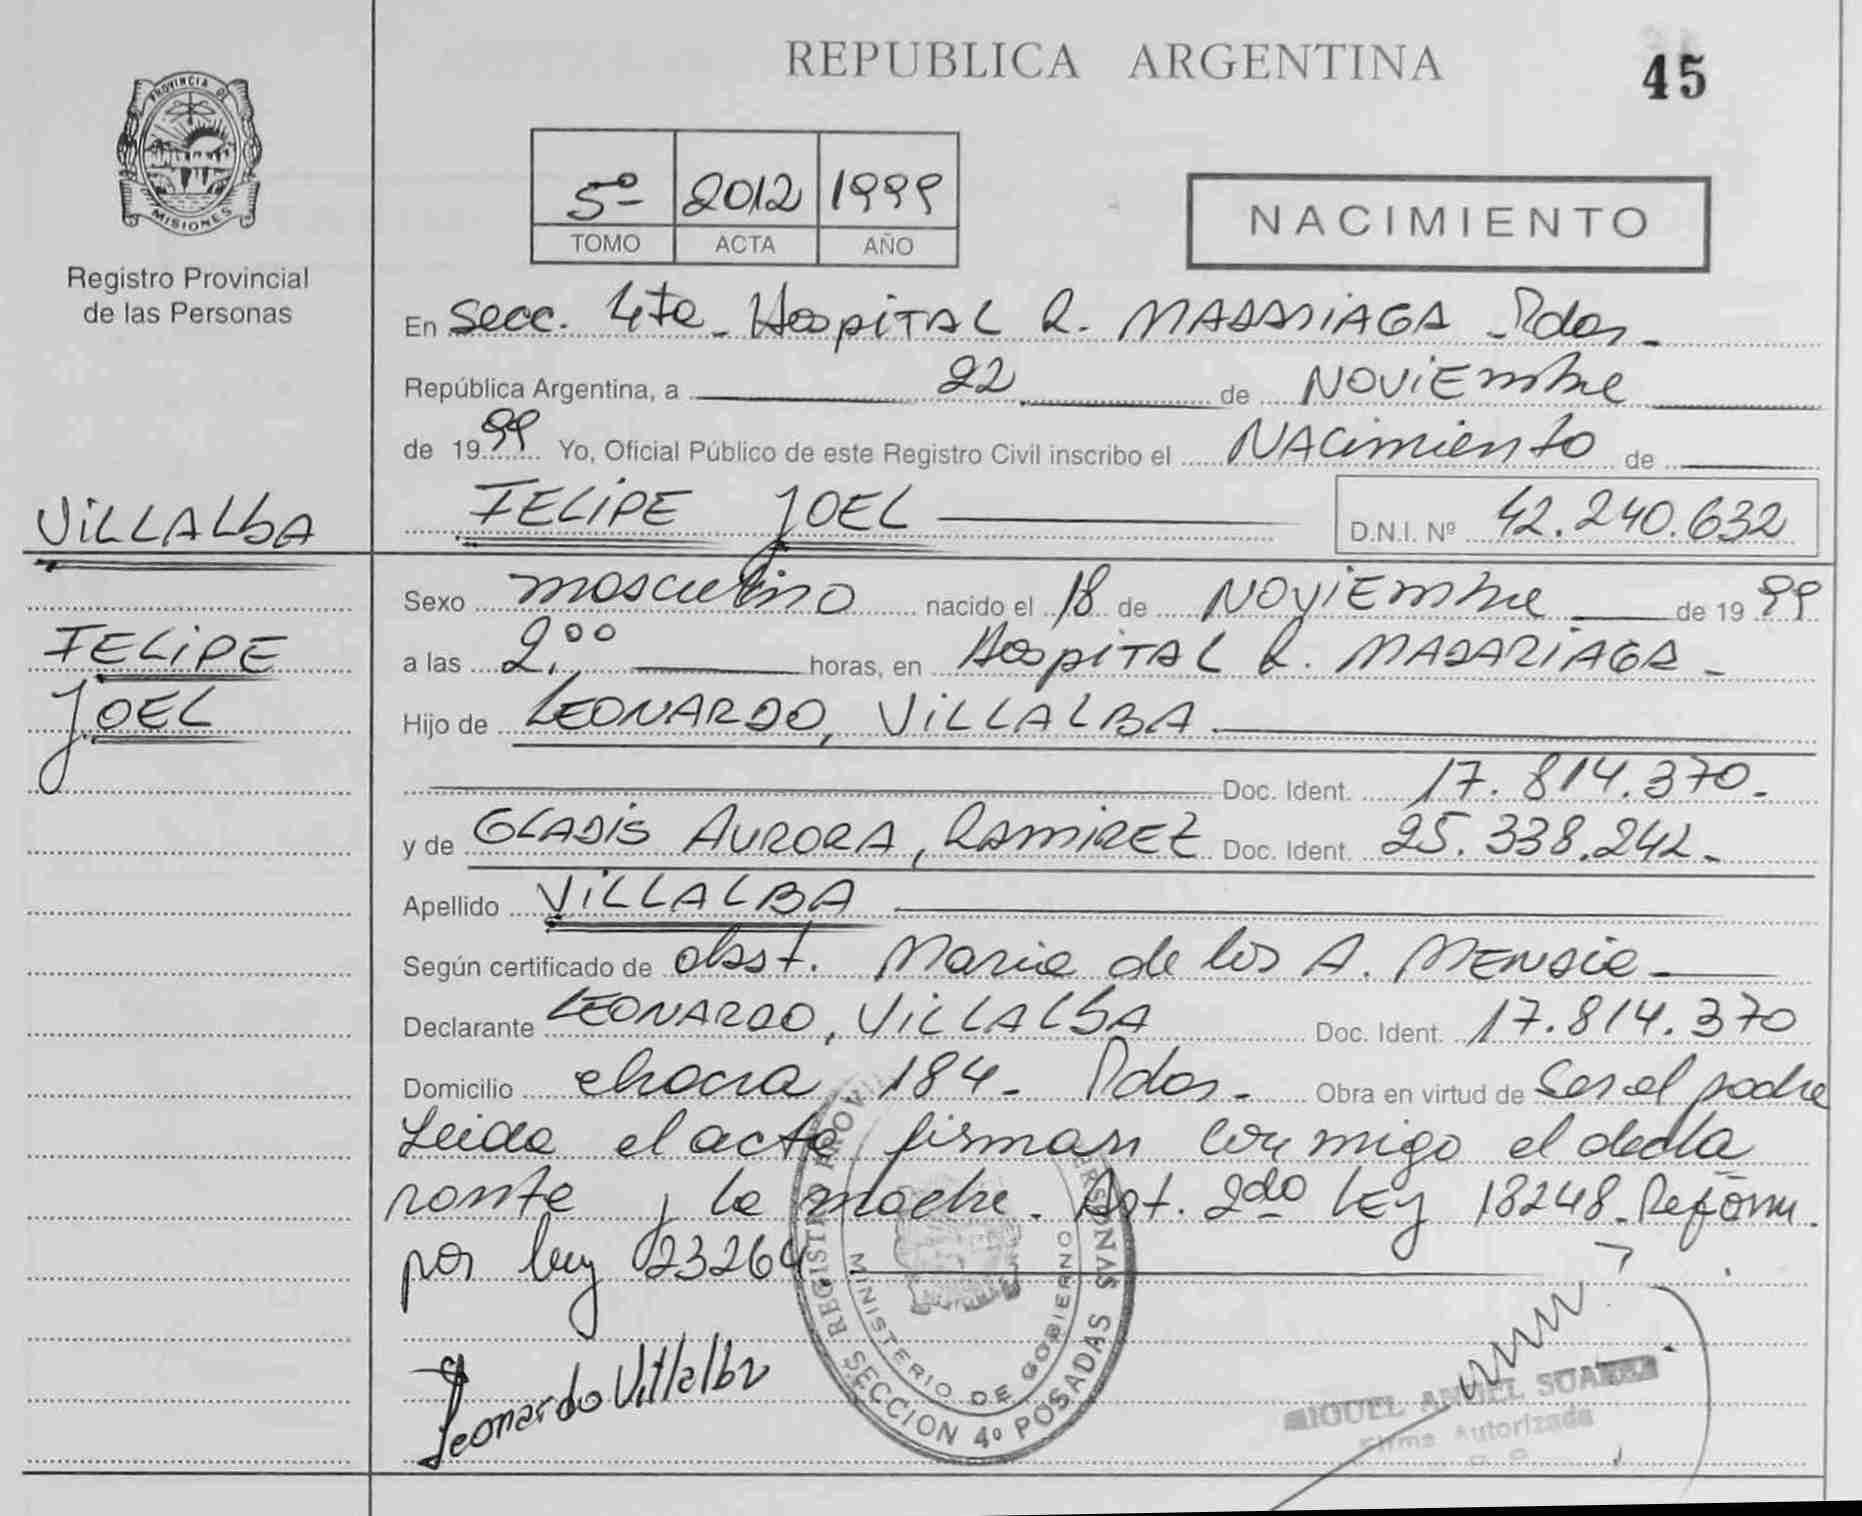 REPUBLICA ARGENTINA
45
PROVINCIA DE
MISIONES
Registro Provincial
de las Personas
5º 2012 1999
TOMO ACTA AÑO
NACIMIENTO
En Secc. 4ta - Hospital R. MADARIAGA - Pdas -
República Argentina, a 22 de NOVIEmbre
de 1999 Yo, Oficial Público de este Registro Civil inscribo el NACimiento de
FELIPE JOEL D.N.I. Nº 42.240.632
VILLALbA
FELIPE
JOEL
Sexo masculino nacido el 18 de NOVIEmbre de 1999
a las 2.00 horas, en HospiTAL R. MADARIAGA -
Hijo de LEONARDO, VILLALBA
Doc. Ident. 17.814.370.-
y de GLADIS AURORA, RAMIREZ Doc. Ident. 25.338.242.-
Apellido VILLALBA
Según certificado de obst. Maria de los A. MENDIE
Declarante LEONARDO, VILLALbA Doc. Ident. 17.814.370
Domicilio chacra 184 - Pdas - Obra en virtud de Ser el padre
Leida el acta firman conmigo el decla
rante y la madre. Art. 2do LEy 18248 - Reform.
por ley 23264
Leonardo Villalba
REGISTRO PROVINCIAL PERSONAS
MINISTERIO DE GOBIERNO
SECCION 4º POSADAS
MIGUEL ANGEL SUAREZ
Firma Autorizada